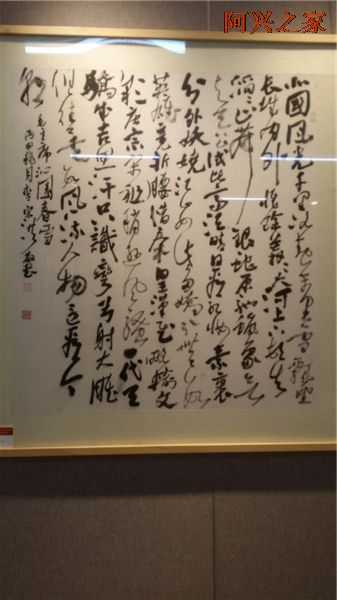 阿兴之家
北國风光千里冰封万里雪飘望
长城内外惟馀莽莽大河上下顿失
滔滔山舞银蛇原驰蜡象欲与
天公试比高须晴日看红妆素裹
分外妖娆江山如此多娇引无数
英雄竞折腰惜秦皇汉武略输文
彩唐宗宋祖稍逊风骚一代天
骄成吉思汗只識弯弓射大雕
俱往矣数风流人物还看今
朝
毛主席沁園春雪
丙申